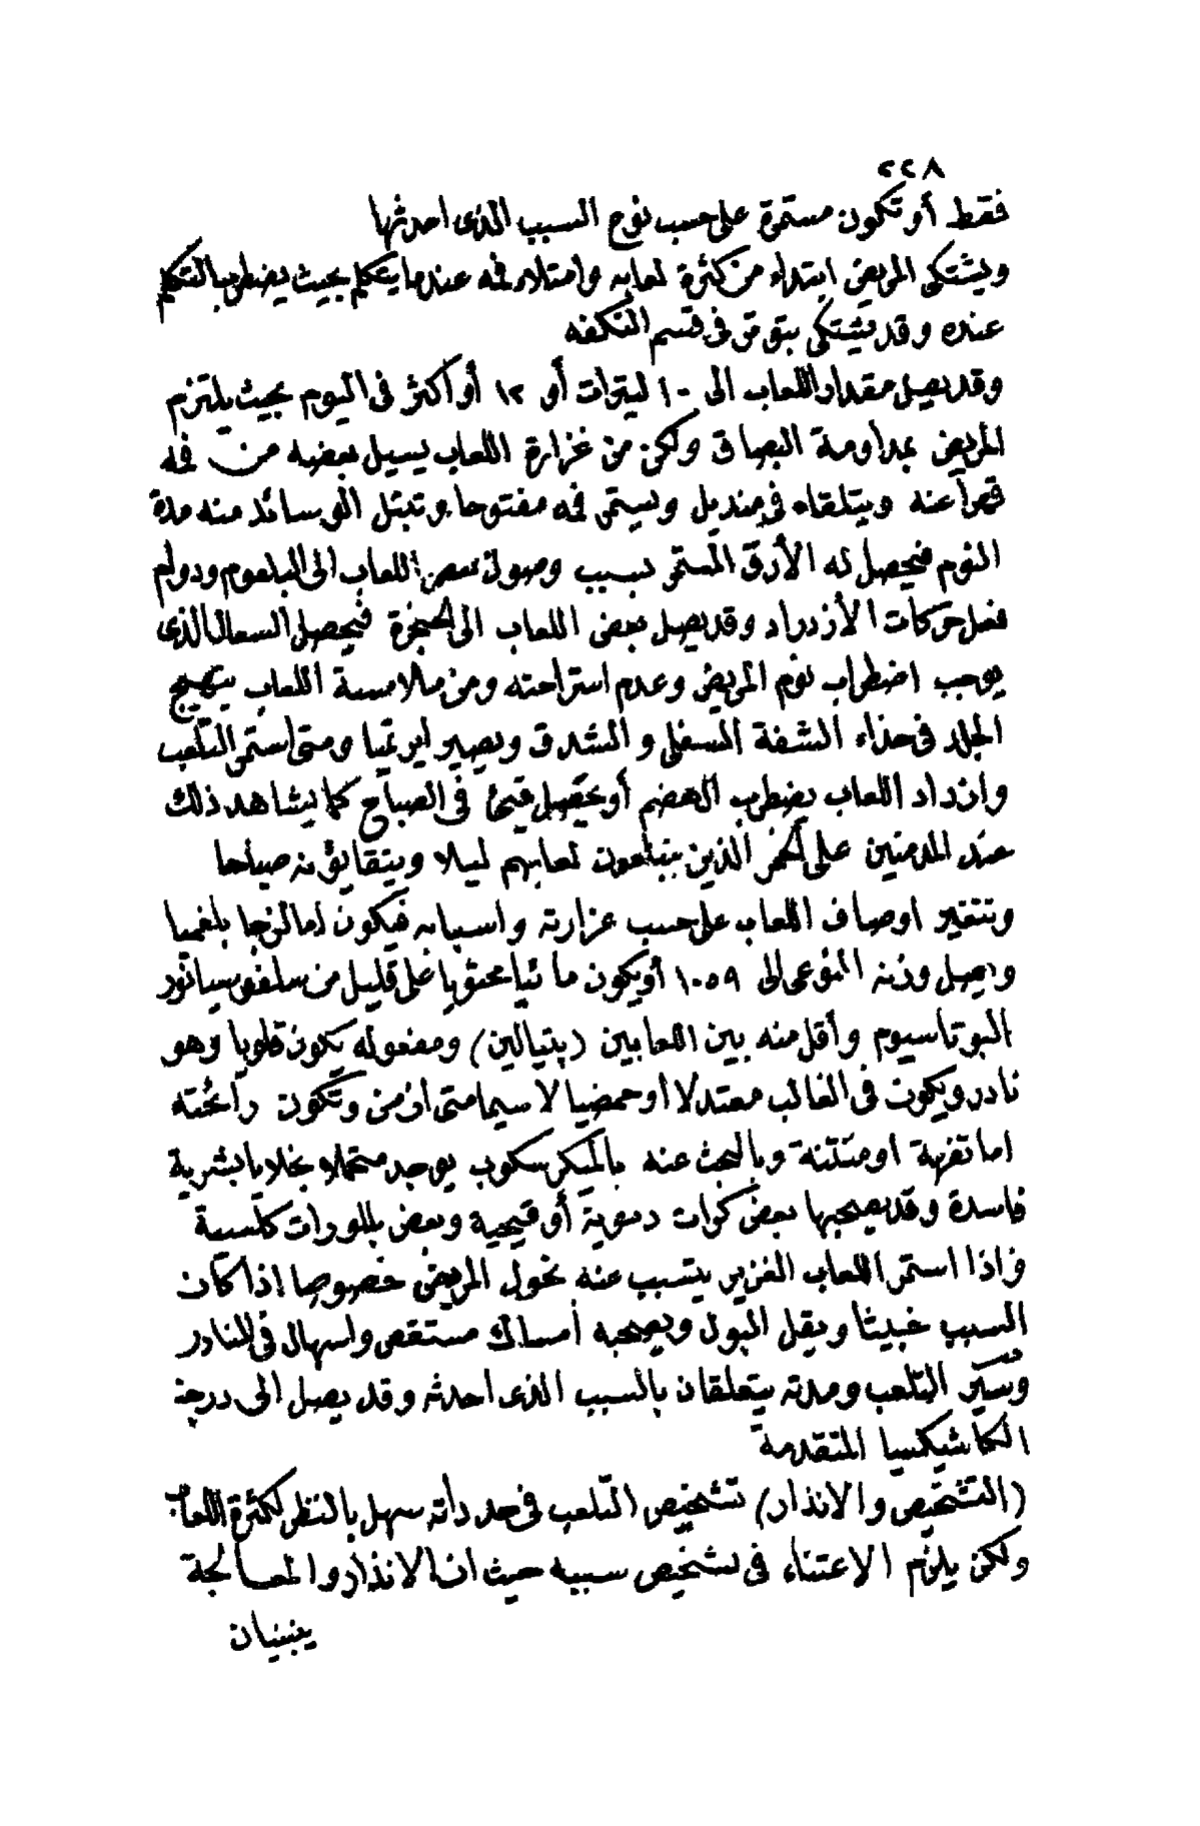 ٢٢٨
فقط أو تكون مستمرة على حسب نوع السبب الذى احدثها
ويشتكى المريض ابتداء من كثرة لعابه وامتلاء فمه عندما يتكلم بحيث يضطرب التكلم
عنده وقد يشتكى بتوتر فى قسم النكفه
وقد يصل مقدار اللعاب الى ١٠ ليترات أو ١٢ أو أكثر فى اليوم بحيث يلتزم
المريض بمداومة البصاق ولكن من غزارة اللعاب يسيل بعضه من فمه
قهراً عنه ويتلقاه فى منديل ويستمر فمه مفتوحا وتبتل الوسائد منه مدة
النوم فيحصل له الأرق المستمر بسبب وصول بعض اللعاب الى البلعوم ودوام
فعل حركات الأزدراد وقد يصل بعض اللعاب الى الحنجرة فيحصل السعال الذى
يوجب اضطراب نوم المريض وعدم استراحته ومن ملامسة اللعاب يتهيج
الجلد فى حذاء الشفة السفلى والشدق ويصير ايرتميا ومتى استمر التلعب
وازداد اللعاب يضطرب الهضم أو يحصل قئ فى الصباح كما يشاهد ذلك
عند المدمنين على الخمر الذين يبتلعون لعابهم ليلا ويتقايؤنه صباحا
وتتغير اوصاف اللعاب على حسب غزارته واسبابه فيكون اما لزجا بلغميا
ويصل وزنه النوعى الى ١٠٥٩ أو يكون مائيا محتويا على قليل من سلفوسيانور
البوتاسيوم وأقل منه بين اللعابين (پتيالين) ومفعوله يكون قلويا وهو
نادر ويكون فى الغالب معتدلا او حمضيا لا سيما متى ازمن وتكون رائحته
اما تفهة او منتنة وبالبحث عنه بالميكرسكوب يوجد متحملا بخلايا بشرية
فاسدة وقد يصحبها بعض كرات دموية أو قيحية وبعض بللورات كلسية
واذا استمر اللعاب الغزير يتسبب عنه نحول المريض خصوصا اذا كان
السبب خبيثا ويقل البول ويصحبه أمساك مستعص واسهال فى النادر
وسَير التلعب ومدته يتعلقان بالسبب الذى احدثه وقد يصل الى درجة
الكاشيكسيا المتقدمة
(التشخيص والانذار) تشخيص التلعب فى حد ذاته سهل بالنظر لكثرة اللعاب
ولكن يلزم الاعتناء فى تشخيص سببه حيث ان الانذار والمعالجة
ينبنيان